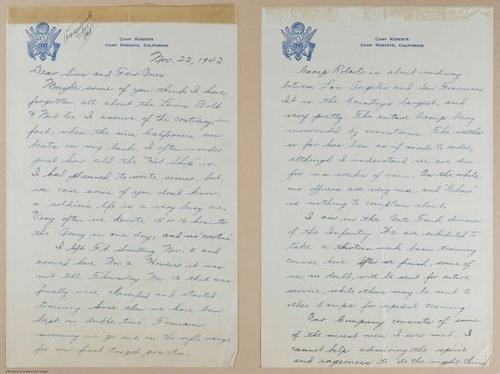 CAMP ROBERTS
CAMP ROBERTS, CALIFORNIA
Answered
Nov. 22, 1942
Dear Sirs and Fair Ones
Maybe some of you think I have
forgotten all about the Lewis Bolt
& Nut Co. I assure of the contrary, in
fact, when the nice California sun
beats on my back, I often wonder
just how cold the "Nut Shop" is.
I had planned to write sooner, but
in case some of you don't know,
a soldier's life is a very busy one.
Very often we devote 15 or 16 hours to
the Army in one day, and no "overtime".
I left Ft. Snelling Nov. 5 and
arrived here Nov. 9. However it was
not till Thursday Nov. 12 that we
finally were classified and started
training. Since then we have been
kept on "double time". Tomorrow
morning we go out on the rifle range
for our first target practice.
CAMP ROBERTS
CAMP ROBERTS, CALIFORNIA
Camp Roberts is about midway
between Los Angeles and San Francisco.
It is the Country's largest, and
very pretty. The entire Camp being
surrounded by mountains. The weather
so far has been as if made to order,
although I understand we are due
for six weeks of rain. On the whole
our officers are very nice, and "chow"
is nothing to complain about.
I am in the Ant. Tank division
of the Infantry. We are scheduled to
take a thirteen week basic training
course here. After we finish, some of
us, no doubt, will be sent for active
service, while others may be sent to
other Camps for special training.
Our Company consists of some
of the nicest men I ever met. I
cannot help admiring the spirit
and eagerness to do the right thing